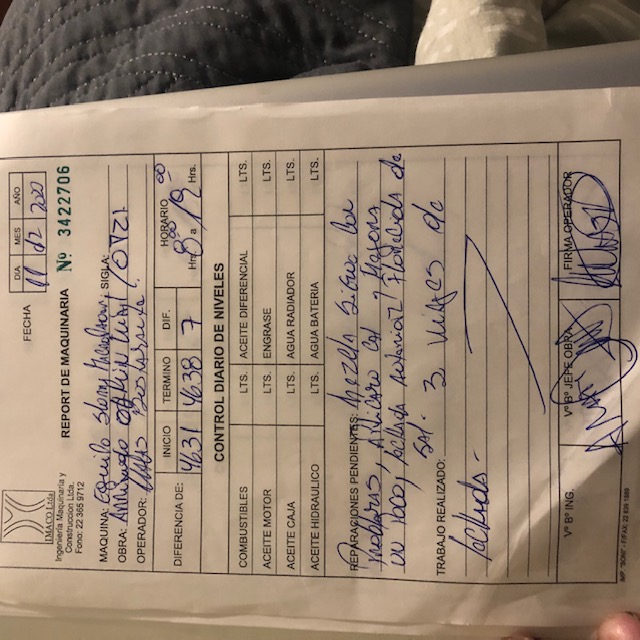 IMACO Ltda
Ingeniería Maquinaria y
Construccion Ltda.
Fono: 22 365 9712
FECHA
DIA MES AÑO
11 02 2020
REPORT DE MAQUINARIA Nº 3422706
MAQUINA: Equipo Slurry SIGLA:
OBRA: / OVZI
OPERADOR:
DIFERENCIA DE:
INICIO TERMINO DIF. HORARIO
4631 4638 7 Hrs. 8⁰⁰ a 19⁰⁰ Hrs.
CONTROL DIARIO DE NIVELES
COMBUSTIBLES LTS. ACEITE DIFERENCIAL LTS.
ACEITE MOTOR LTS. ENGRASE LTS.
ACEITE CAJA LTS. AGUA RADIADOR LTS.
ACEITE HIDRAULICO LTS. AGUA BATERIA LTS.
REPARACIONES PENDIENTES: Mezcla sigue con
problemas, cal y mejora
un poco, lechada anterior florecida de
sal.
TRABAJO REALIZADO: 3 viajes de
lechada -
Vº Bº ING. Vº Bº JEFE OBRA FIRMA OPERADOR
IMP. "BONI" - F/FAX: 22 839 1889